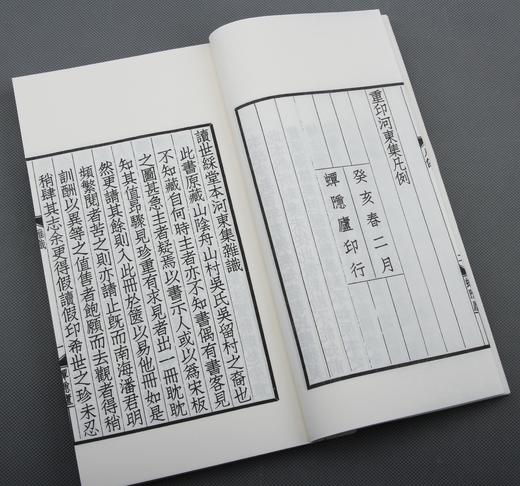 重印河東集凡例
癸亥春二月
蟫隱廬印行
讀世綵堂本河東集雜識
此書原藏山陰舟山村吳氏吳留村之裔也
不知藏自何時主者亦不知書偶有書客見
之圖甚急主者疑焉以書示人或以爲宋板
知其值昂驟見珍重有求見者出一冊眈眈
然更請其餘則入此冊於篋以易他冊如是
頻繁閱者苦之則亦請止旣而南海潘君明
訓酬以異等之值售者飽願而去觀者得稍
稍肆其志余更得假讀假印希世之珍未忍